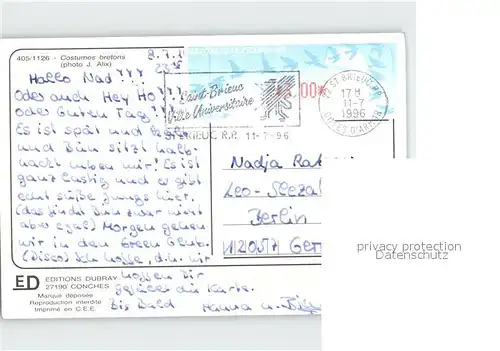 405/1126 - Costumes bretons
(photo J. Alix)
8.7.
Hallo Nad???
Oder auch Hey Ho???
oder Guten Tag???
Es ist spät und
und Bine sitzt halb-
nackt neben mir! Es ist
ganz lustig und es gibt
echt süße Jungs hier.
(das findet Bine zwar nicht
aber egal) Morgen gehen
wir in den Green Club.
(Disco) Ich hoffe, d.h. wir
hoffen Dir
gefällt die Karte.
Bis Bald Hanna u.
ED EDITIONS DUBRAY
27190 CONCHES
Marque déposée
Reproduction interdite
Imprimé en C.E.E.
Saint-Brieuc
Ville Universitaire
ST BRIEUC R.P. 11-7-96
.00*
ST BRIEUC RP
17 H
11-7
1996
COTES D'ARMOR
Nadja
Leo-
Berlin
12057 Ger
privacy protection
Datenschutz